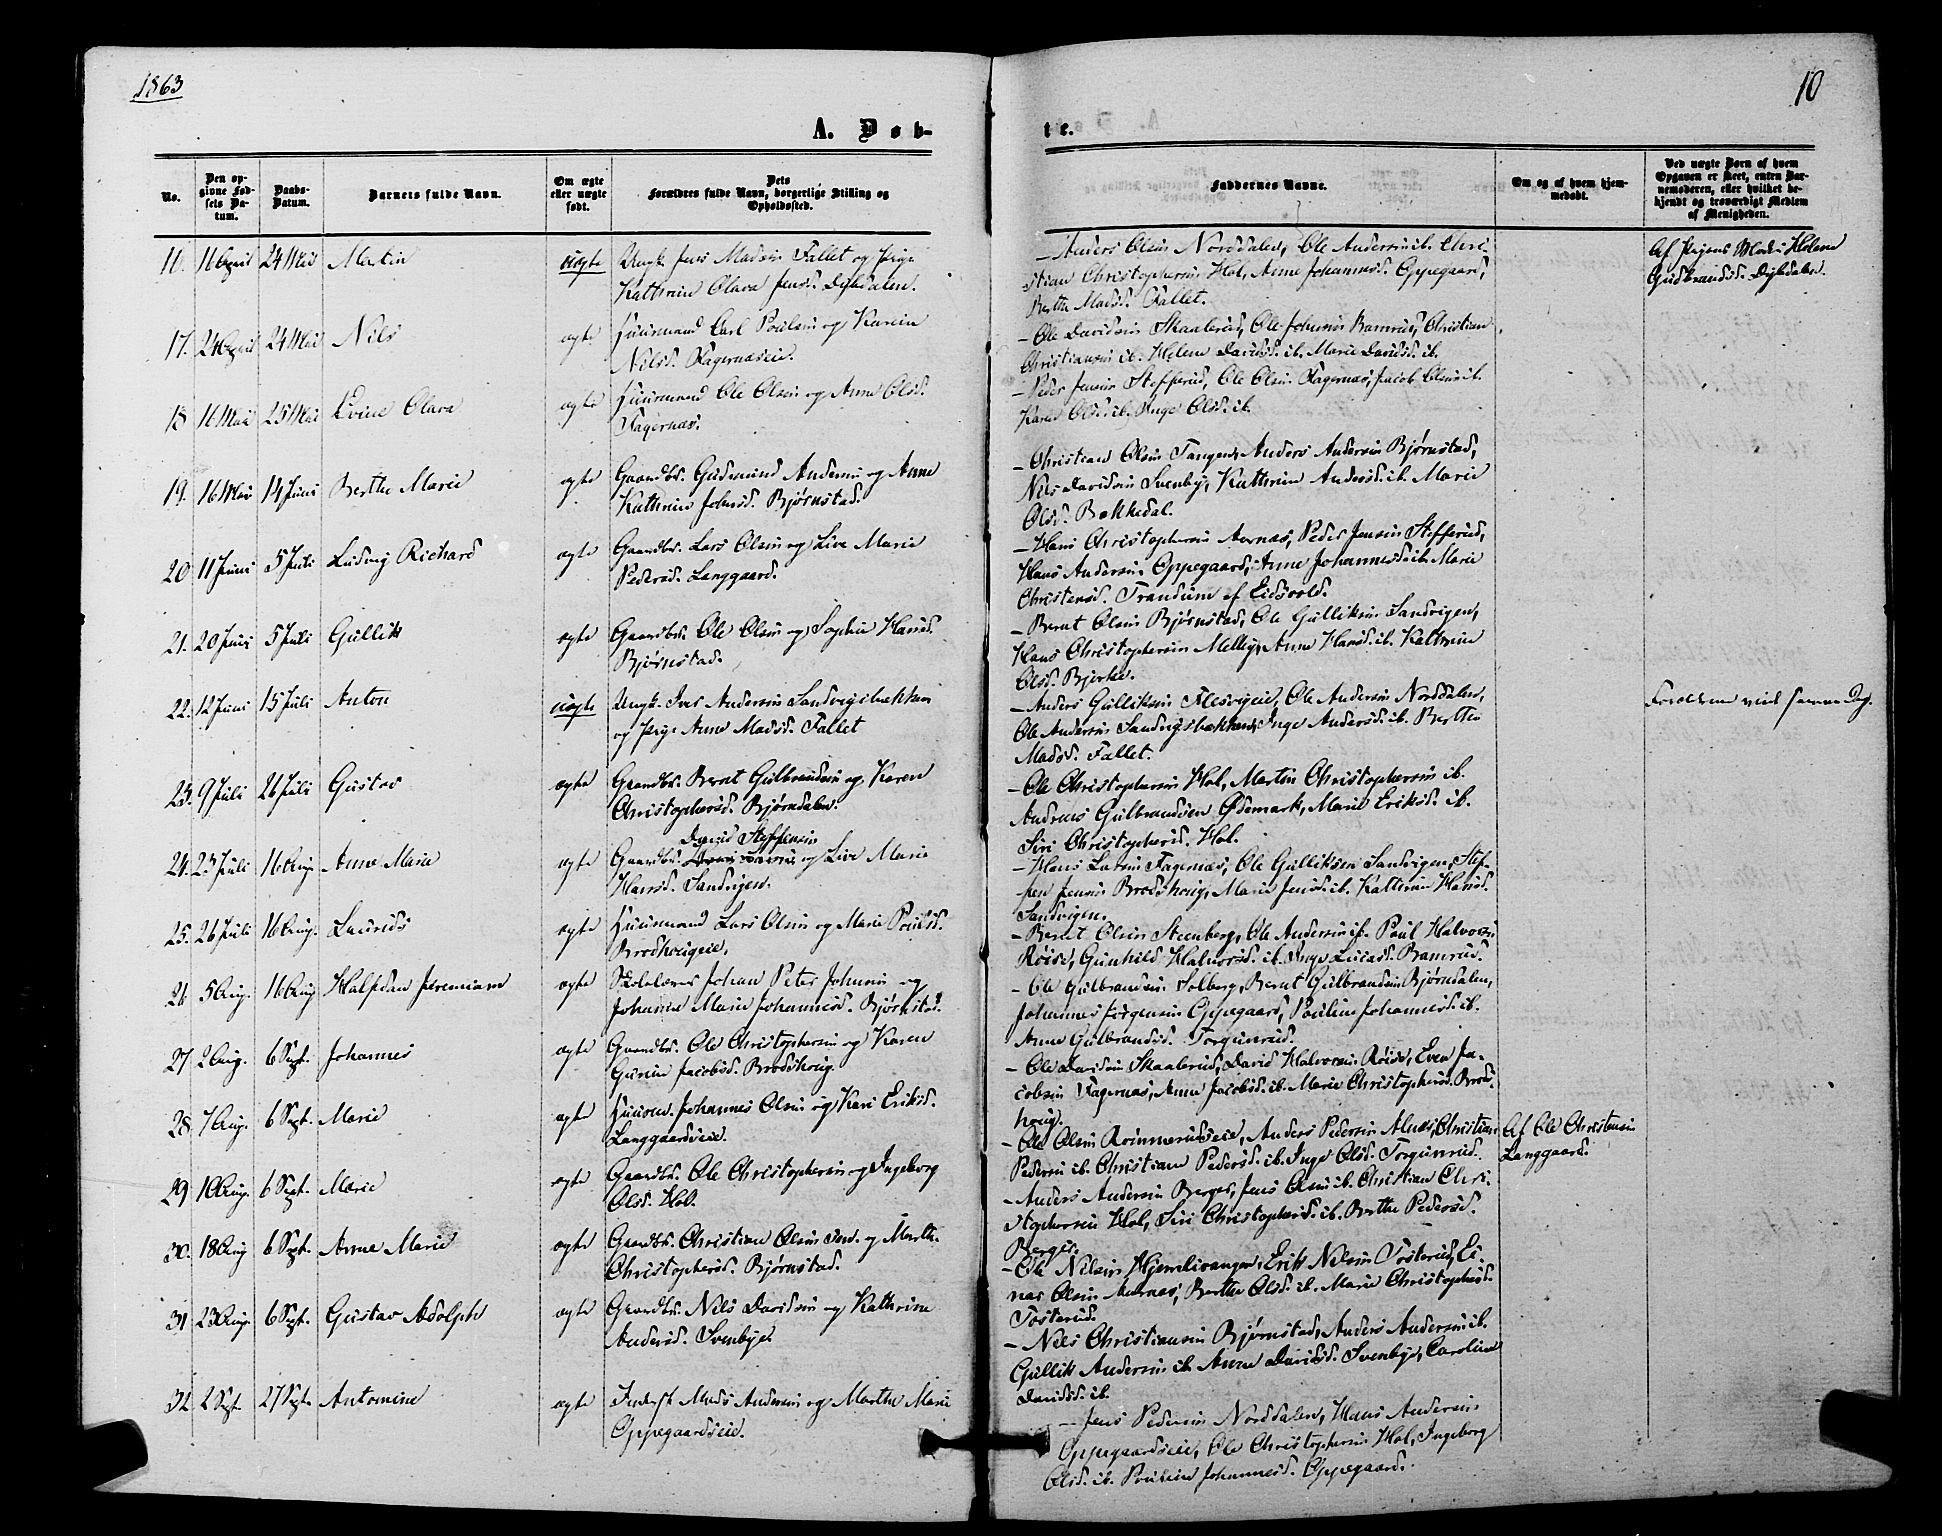 1863
10
A. Døb-
te.
No.
Den op-
givne Fød-
sels Da-
tum.
Daabs-
Datum.
Barnets fulde Navn.
Om ægte
eller uægte
født.
Dets
Forældres fulde Navn, borgerlige Stilling og
Opholdssted.
Faddernes Navne.
Om og af hvem hjem-
medøbt.
Ved uægte Børn af hvem
Opgaven er skeet, enten Bar-
nemoderen, eller hvilket be-
kjendt og troværdigt Medlem
af Menigheden.
16. 16 April 24 Mai Martin uægte Ungk. Jens Madsen Fallet og Pige
Kathrine Olava Jensd. Dybdalen.
- Anders Olsen Norddalen, Ole Andersen ib. Chri-
stian Christophersen Hol, Anne Johannesd. Oppegaard,
Berthe Madsd. Fallet.
Af Pigens Moder Helene
Gudbrandsd. Dybdalen.
17. 24 April 24 Mai Nils ægte Huusmand Carl Poulsen og Karen
Nilsd. Fagernæseie.
- Ole Davidsen Skaalerud, Ole Johnsen Bamrud, Christian
Christiansen ib. Helene Davidsd. ib. Marie Davidsd. ib.
18 16 Mai 25 Mai Evine Olava ægte Huusmand Ole Olsen og Anne Olsd.
Fagernæs.
- Peder Jensen Stefferud, Ole Olsen Fagernæs, Jacob Olsen ib.
Karen Olsd. ib. Inge Olsd. ib.
19. 16 Mai 14 Juni Berthe Marie ægte Gaardbr. Gudmund Andersen og Anne
Kathrine Johnsd. Bjørnstad.
- Christian Olsen Tangen, Anders Andersen Bjørnstad,
Nils Davidsen Svenby, Kathrine Andersd. ib. Marie
Olsd. Bekkedal.
20 11 Juni 5 Juli Ludvig Richard ægte Gaardbr. Lars Olsen og Live Marie
Pedersd. Langgaard.
- Hans Christophersen Aurnæs, Peder Jensen Stefferud,
Hans Andersen Oppegaard, Anne Johannesd. ib. Marie
Christensd. Trandum af Eidsvold.
21. 20 Juni 5 Juli Gullik ægte Gaardbr. Ole Olsen og Sophie Hansd.
Bjørnstad.
- Bernt Olsen Bjørnstad, Ole Gulliksen Sandvigen,
Hans Christophersen Melby, Anne Hansd. ib. Kathrine
Olsd. Bjerke.
22. 12 Juni 15 Juli Anton uægte Ungk. Iver Andersen Sandvigsbakken
og Pige Anne Madsd. Fallet
- Anders Gulliksen Flesvigeie, Ole Andersen Norddalen,
Ole Andersen Sandvigsbakken, Inge Andersd. ib. Berthe
Madsd. Fallet.
Forældrene viede samme Dag.
23. 9 Juli 26 Juli Gustav ægte Gaardbr. Bernt Gulbrandsen og Karen
Christophersd. Bjørndalen.
- Ole Christophersen Hol, Martin Christophersen ib.
Andreas Gulbrandsen Ødemark, Marie Eriksd. ib.
Siri Christophersd. Hol.
David Steffensen
24. 23 Juli 16 Aug. Anne Marie ægte Gaardbr. og Live Marie
Hansd. Sandvigen.
- Hans Larsen Fagernæs, Ole Gulliksen Sandvigen, Stef-
fen Jensen Brodshoug, Marie Jensd. ib. Kathrine Hansd.
Sandvigen.
25. 26 Juli 16 Aug. Laurids ægte Huusmand Lars Olsen og Marie Poulsd.
Brodshougeie.
- Bernt Olsen Steenberg, Ole Andersen ib. Poul Halvorsen
Røise, Gunhild Halvorsd. ib. Inge Lucasd. Bamrud.
26 5 Aug. 16 Aug Halfdan Jeremiam ægte Skolelærer Johan Peter Johnsen og
Johanne Marie Johannesd. Bjørnstad.
- Ole Gulbrandsen Solberg, Bernt Gulbrandsen Bjørndalen,
Johannes Jørgensen Oppegaard, Pouline Johannesd. ib.
Anne Gulbrandsd. Torgunrud.
27 2 Aug. 6 Sept. Johannes ægte Gaardbr. Ole Christophersen og Karen
Gurine Jacobsd. Brodshoug.
- Ole Davidsen Skaalerud, David Halvorsen Røise, Even Ja-
cobsen Fagernæs, Anne Jacobsd. ib. Marie Christophersd. Brods-
houg.
28. 7 Aug. 6 Sept. Marie ægte Huusm. Johannes Olsen og Kari Eriksd.
Langgaardseie.
- Ole Olsen Rømmerudseie, Anders Pedersen Alnæs, Christian
Pedersen ib. Christiane Pedersd. ib. Inge Olsd. Torgunrud.
Af Ole Christensen
Langgaard.
29 10 Aug. 6 Sept. Marie ægte Gaardbr. Ole Christophersen og Ingeborg
Olsd. Hol.
- Anders Andersen Berger, Jens Olsen ib. Christian Chri-
stophersen Hol, Siri Christophersd. ib. Berthe Pedersd.
Berger.
30. 18 Aug 6 Sept. Anne Marie ægte Gaardbr. Christian Olsen og Marthe
Christophersd. Bjørnstad.
- Ole Nilsen Hjemlivangen, Erik Nilsen Tosterud, Ei-
nar Olsen Aurnæs, Berthe Olsd. ib. Marie Christophersd.
Tosterud.
31 23 Aug. 6 Sept. Gustav Adolph ægte Gaardbr. Nils Davidsen og Kathrine
Andersd. Svenbye.
- Nils Christiansen Bjørnstad, Anders Andersen ib.
Gullik Andersen ib. Anne Davidsd. Svenbye, Caroline
Davidsd. ib.
32 2 Sept 27 Sept. Antomine ægte Inderst Mads Andersen og Marthe Marie
Oppegaardseie.
- Jens Pedersen Norddalen, Hans Andersen
Oppegaardseie, Ole Christophersen Hol, Ingeborg
Olsd. ib. Pouline Johannesd. Oppegaard.